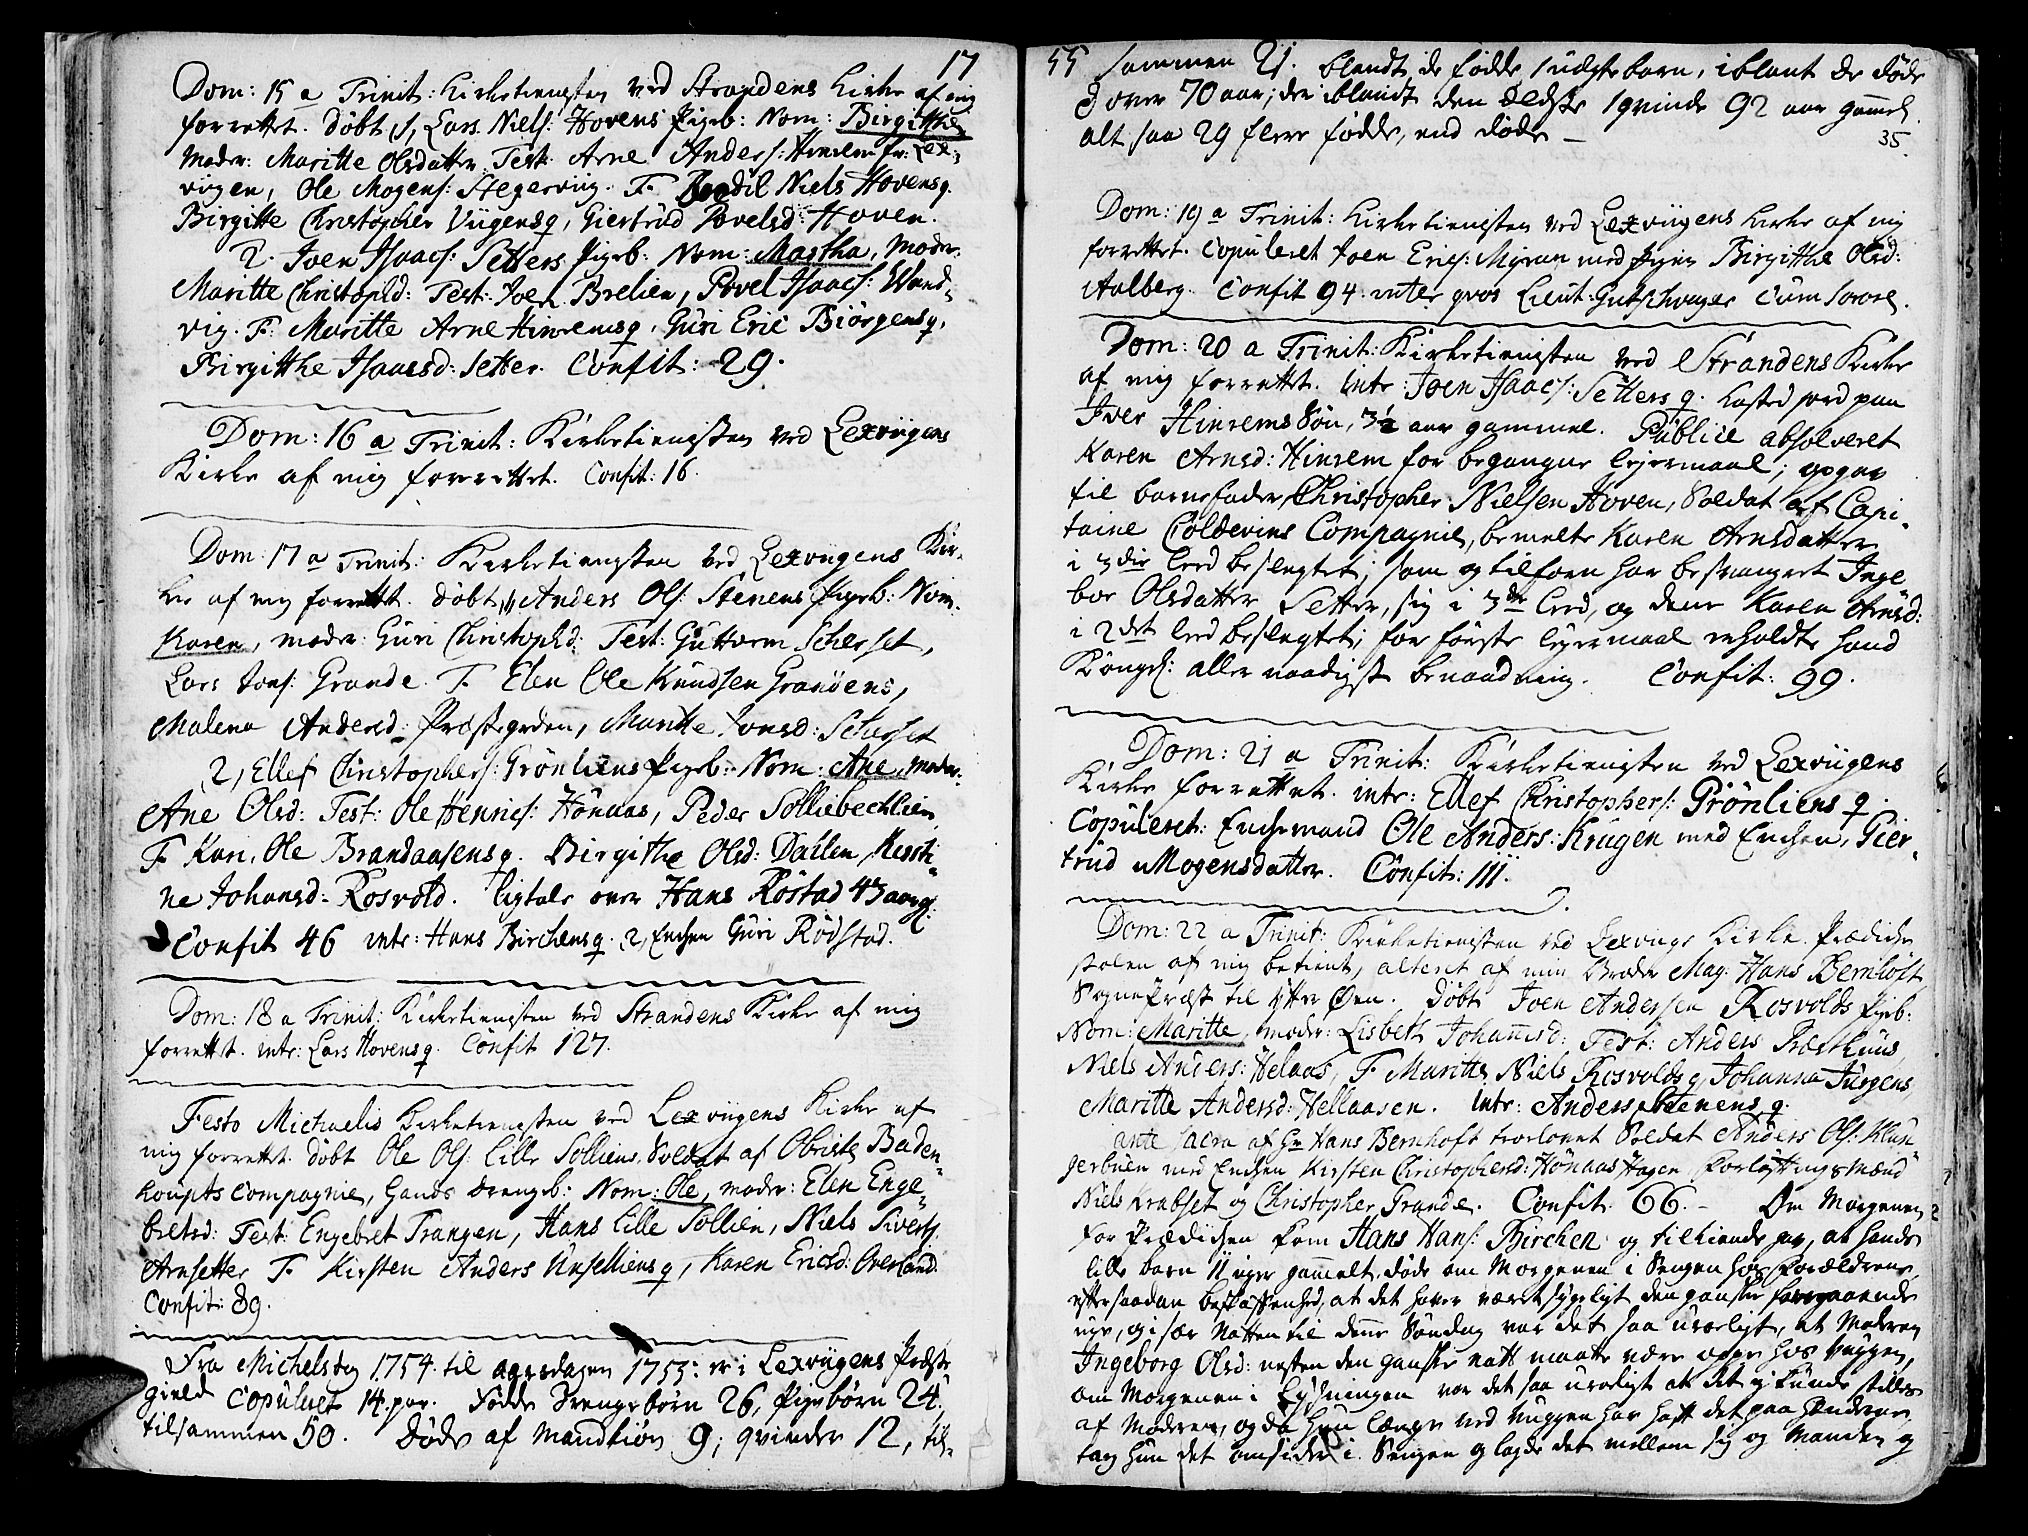 17
Dom: 15 a Trinit: Kirketienesten ved Strandens Kirke af mig
forrettet. Døbt 1, Lars Niels: Hovens Pigeb: Nom: Birgitthe
Moder: Maritte Olsdatter Test: Arne Anders: Hinrem fr: Lex-
viigen, Ole Mogens: Stegerviig. F. Bodil Niels Hovens q.
Birgitte Christopher Viigens q, Giertrud Povelsd: Hoven.
2. Joen Isaacs: Setters Pigeb: Nom: Martha, Moder:
Maritte Christophd: Test: Joen Brelien, Povel Isaacs: Wand-
vig. F. Maritte Arne Hinrems q, Guri Eric Biørgens q,
Birgitthe Isaacsd: Setter. Confit: 29.
Dom: 16 a Trinit: Kirketienesten ved Lexviigens
Kirke af mig forrettet. Confit: 16.
Dom: 17 a Trinit: Kirketienesten ved Lexviigens Kir-
ke af mig forrettet. Døbt 1, Anders Ols: Stenens Pigeb: Nom.
Karen, moder: Guri Christophd: Test: Guttorm Scherset,
Lars Jons: Grande. F. Elen Ole Knudsen Grandens,
Malena Andersd: Præstegrden, Maritte Jonsd: Scherset
2, Ellef Christophers: Grønliens Pigeb: Nom: Ane, moder:
Ane Olsd: Test: Ole Henrics: Hønaas, Peder Solliebechlien
F. Kari, Ole Brandaasens q. Birgithe Olsd: Dahlen, Kersti-
ne Johansd: Rosvold. Ligtale over Hans Røstad 43 aar gl:
Confit 46 intr: Hans Birchens q. 2, Enchen Guri Rødstad.
Dom: 18 a Trinit: Kirketienesten ved Strandens Kirke af mig
forrettet. intr: Lars Hovens q. Confit 127.
Festo Michaelis Kirketienesten ved Lexviigens Kirke af
mig forrettet. Døbt Ole Ols: Lille Solliens, Soldat af Obriste Baden-
houpts Compagnie, hands drengeb: Nom: Ole, moder: Elen Enge-
bretsd: Test: Engebret Trangen, Hans Lille Sollien, Niels Sivers:
Arnsetter F. Kirsten Anders Unselliens q, Karen Ericsd: Overland.
Confit: 89.
Fra Michelsdag 1754 til 1755: er i Lexviigens Præste
gield Copuleret 14 par. Fødde Drengebørn 26, Pigebørn 24.
tilsammen 50. Døde af Mandkiøn 9; qvinder 12, til-
55 sammen 21. blandt de fødde 1 uægte barn, iblant de døde
3 over 70 aar; der iblandt den Eldste 1 qvinde 92 aar gammel.
alt saa 29 flere fødde, end døde –
35.
Dom: 19 a Trinit: Kirketienesten ved Lexviigens Kirke af mig
forrettet. Copuleret Joen Erics: Myran med Pigen Birgitthe Olsd:
Aalberg. Confit 94. inter qvos Lieut: Gutschwager cum sorore.
Dom: 20 a Trinit: Kirketienesten ved Strandens Kirke
af mig forrettet. Intr: Joen Isaacs: Setters q. Kasted jord paa
Iver Hinrems Søn, 3½ aar gammel. Publice absolveret
Karen Arnsd: Hinrem for begangne lejermaal; opgav
til barnefader Christopher Nielsen Hoven, Soldat af Capi-
taine Coldevins Compagnie, bemelte Karen Arnsdatter
i 3die leed beslegtet; som og tilforn har besvangret Inge
bor Olsdatter Setter, sig i 3de leed, og denne Karen Arnsd:
i 2det leed beslegtet; for første lejermaal erholdte hand
Kongel: aller naadigst benaadning. Confit: 99.
Dom: 21 a Trinit: Kirketienesten ved Lexviigens
Kirke forrettet. intr: Ellef Christophers: Grønliens q.
Copuleret: Enchemand Ole Anders: Krugen med Enchen, Gier-
trud Mogensdatter. Confit: 111.
Dom: 22 a Trinit: Kirketienesten ved Lexviigs Kirke. Prædiche
stolen af mig betient, alteret af min Broder Mag: Hans Bernhoft
SognePræst til Ytter Øen. Døbt Joen Andersen Rosvolds Pigeb:
Nom: Maritte, moder: Lisbeth Johansd: Test: Anders Præsthuus,
Niels Anders: Helaas, F. Maritte Niels Rosvolds q, Johanna Jürgens,
Maritte Andersd: Hellaasen. Intr: Anders Stenens q.
ante sacra af Hr Hans Bernhoft trolovet Soldat Anders Ols: Klun
gerbuen med Enchen Kirsten Christophersd: Hønaas Hagen, Forløftningsmænd
Niels Krabset og Christopher Grande. Confit. 66. – Om Morgenen
for Prædichen kom Hans Hans: Birchen og tilkiende gav, at hands
lille barn 11 uger gammelt, døde om Morgenen i Sengen hos Forældrene
efter saadan beskaffenhed, at det haver været sygeligt den ganske foregaaende
uge, og især Natten til denne Søndag var det saa uroeligt, at Moderen
Ingeborg Olsd: nesten den ganske natt maatte være oppe hos Vuggen,
om Morgenen i Lysningen var det saa uroligt at det ej kunde stilles
af Moderen, og da hun længe ved Vuggen har haft det paa Henderne,
tog hun det omsider i Sengen og lagde det mellem sig og Manden og